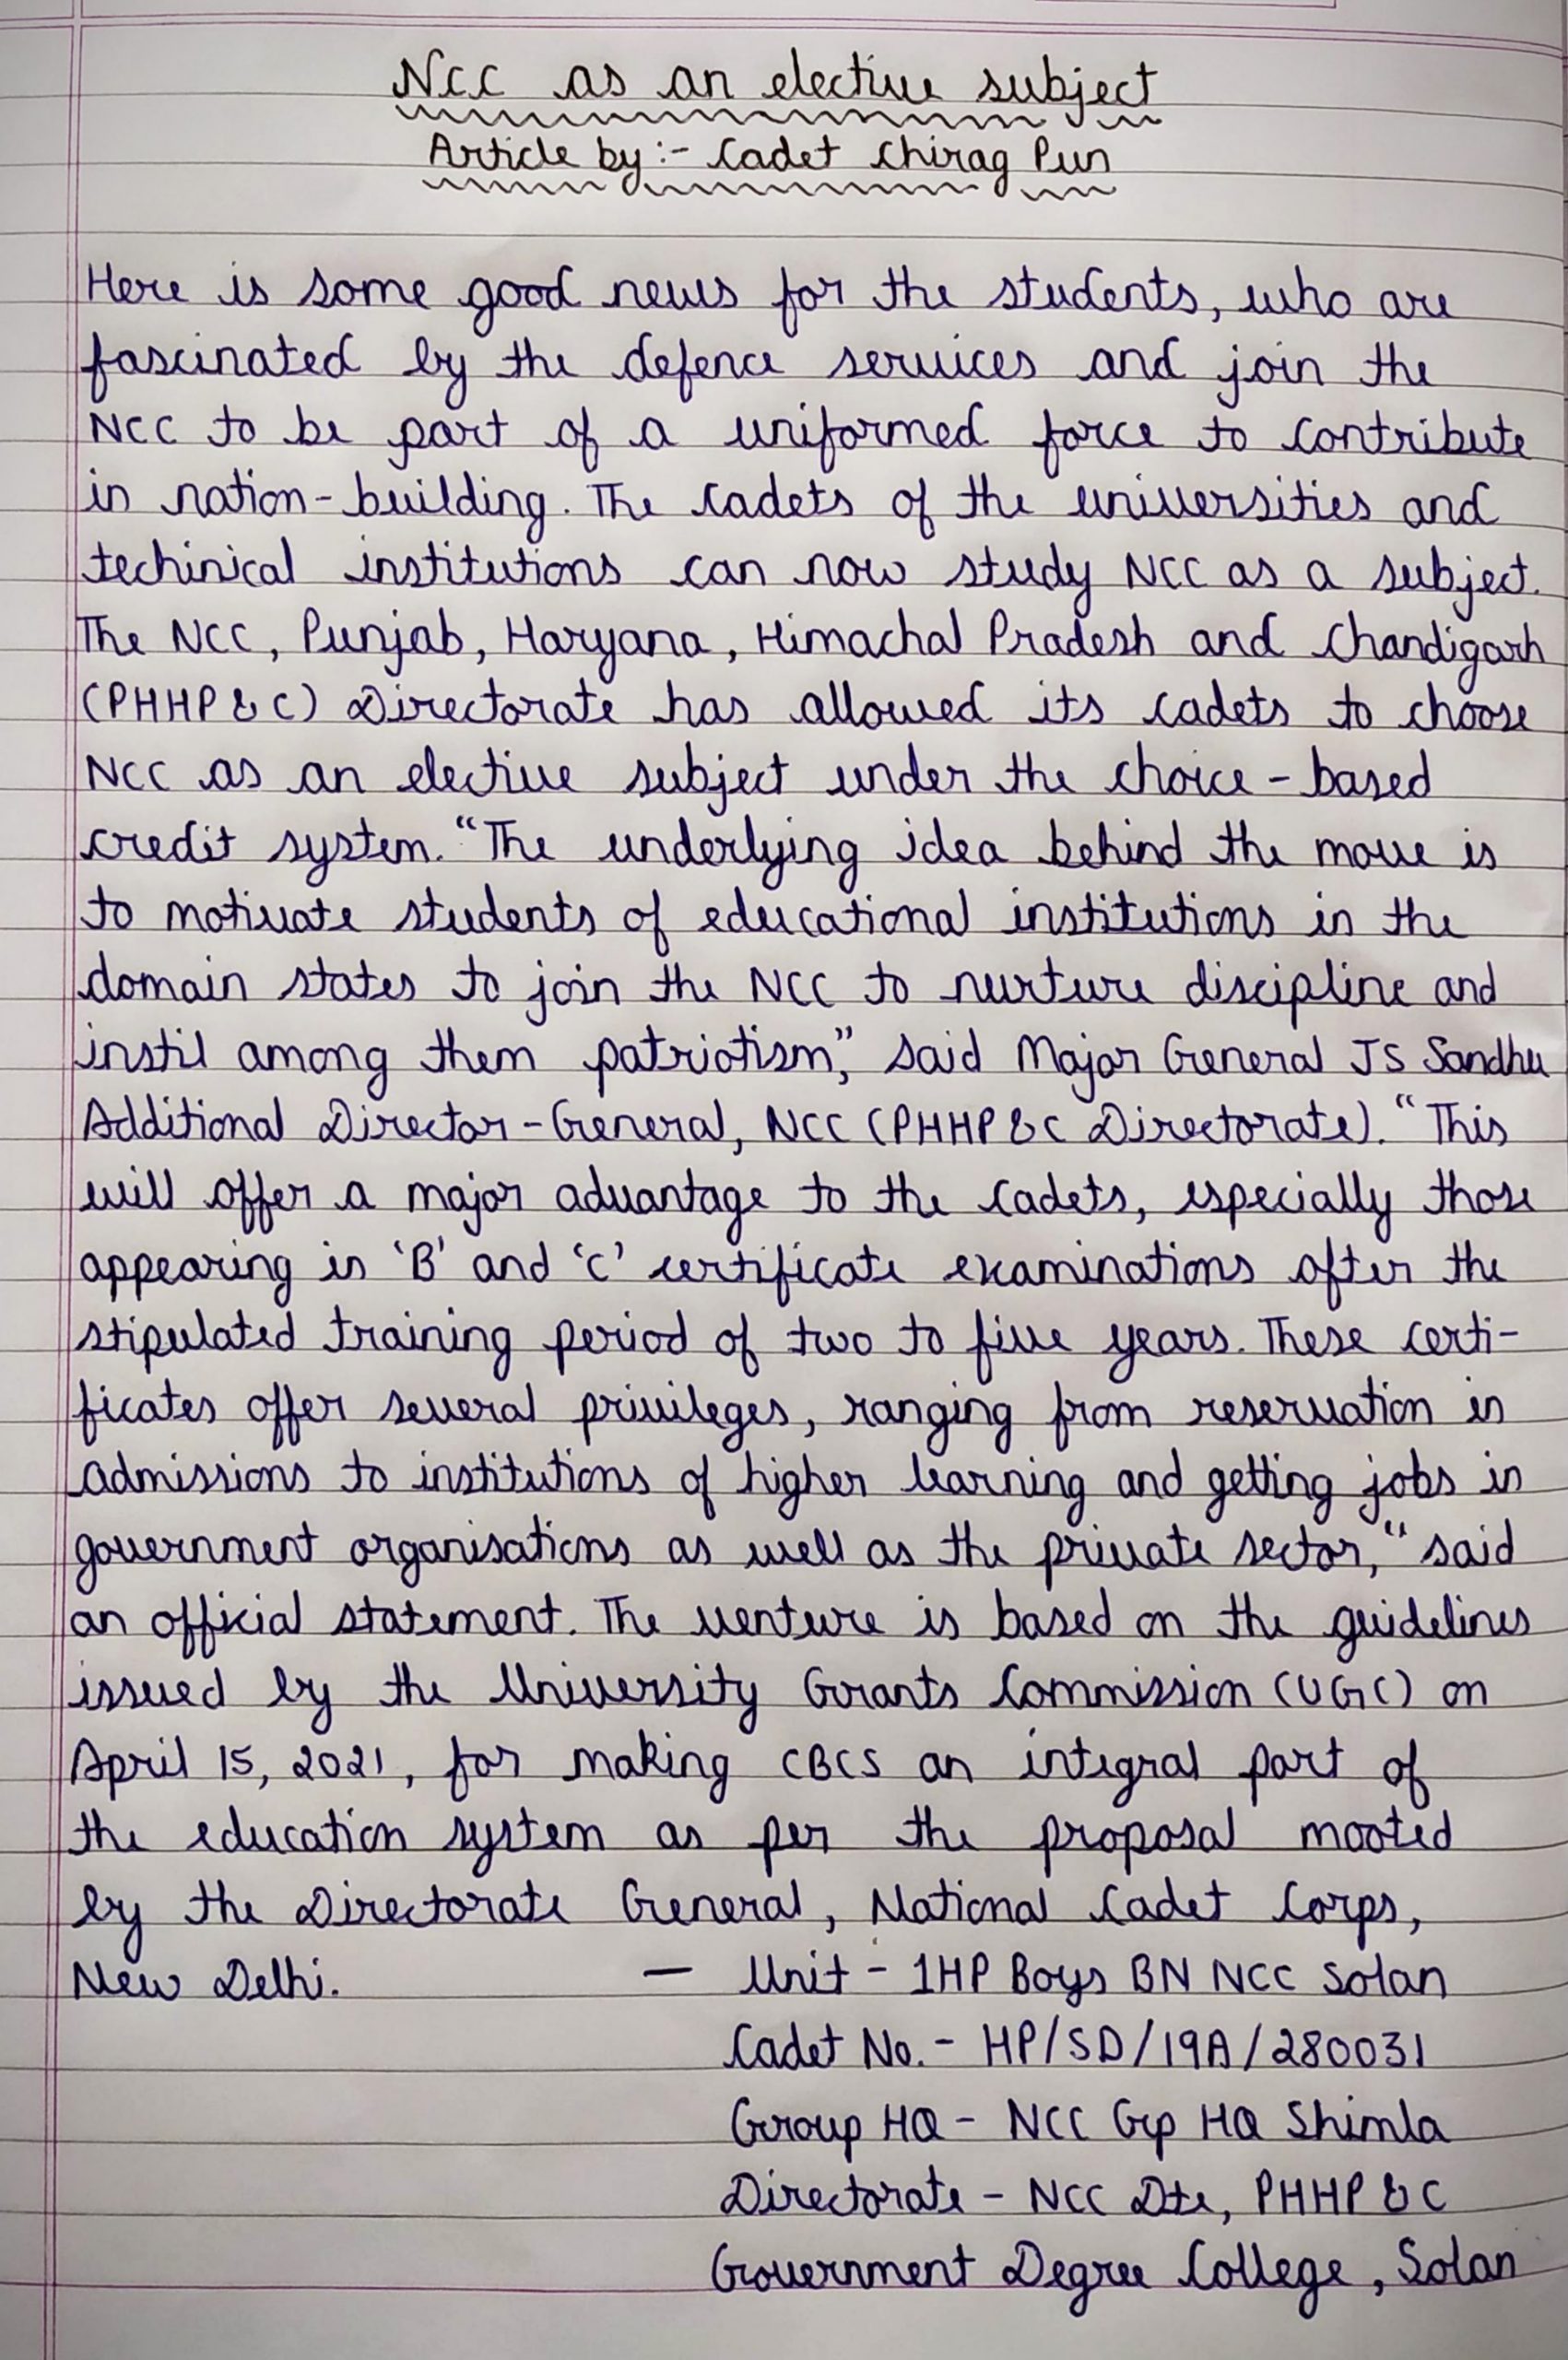 NCC as an elective subject
Article by :- Cadet Chirag Pun
Here is some good news for the students, who are
fascinated by the defence services and join the
NCC to be part of a uniformed force to contribute
in nation-building. The cadets of the universities and
techinical institutions can now study NCC as a subject.
The NCC, Punjab, Haryana, Himachal Pradesh and Chandigarh
(PHHP&C) Directorate has allowed its cadets to choose
NCC as an elective subject under the choice-based
credit system. "The underlying idea behind the move is
to motivate students of educational institutions in the
domain states to join the NCC to nurture discipline and
instil among them patriotism," said Major General JS Sandhu
Additional Director-General, NCC (PHHP&C Directorate). "This
will offer a major advantage to the cadets, especially those
appearing in 'B' and 'C' certificate examinations after the
stipulated training period of two to five years. These certi-
ficates offer several privileges, ranging from reservation in
admissions to institutions of higher learning and getting jobs in
government organisations as well as the private sector," said
an official statement. The venture is based on the guidelines
issued by the University Grants Commission (UGC) on
April 15, 2021, for making CBCS an integral part of
the education system as per the proposal mooted
by the Directorate General, National Cadet Corps,
New Delhi. — Unit - 1HP Boys BN NCC Solan
Cadet No. - HP/SD/19A/280031
Group HQ - NCC Gp HQ Shimla
Directorate - NCC Dte, PHHP&C
Government Degree College, Solan